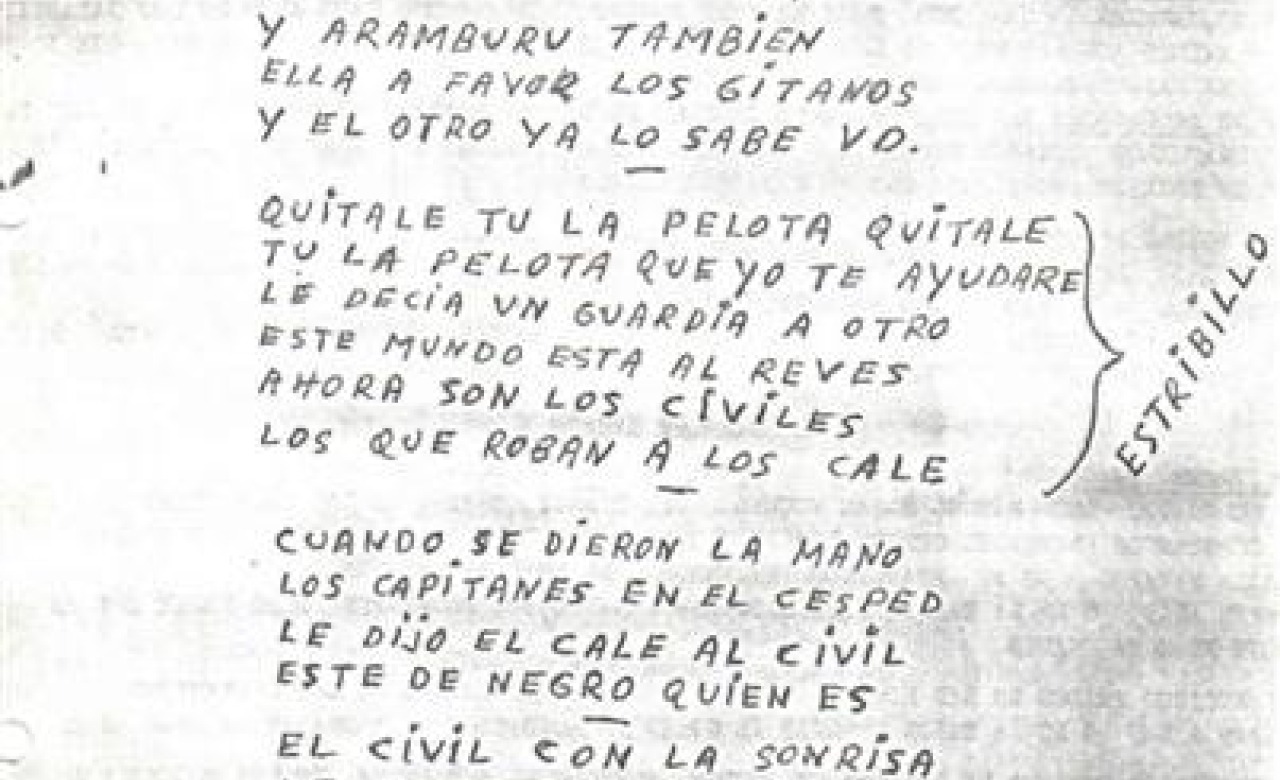 Y ARAMBURU TAMBIEN
ELLA A FAVOR LOS GITANOS
Y EL OTRO YA LO SABE VD.
QUITALE TU LA PELOTA QUITALE
TU LA PELOTA QUE YO TE AYUDARE
LE DECIA UN GUARDIA A OTRO
ESTE MUNDO ESTA AL REVES
AHORA SON LOS CIVILES
LOS QUE ROBAN A LOS CALE
ESTRIBILLO
CUANDO SE DIERON LA MANO
LOS CAPITANES EN EL CESPED
LE DIJO EL CALE AL CIVIL
ESTE DE NEGRO QUIEN ES
EL CIVIL CON LA SONRISA